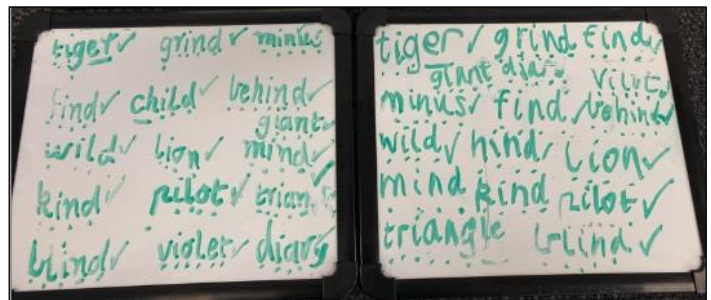 tiger✓ grind✓ minus
find✓ child✓ behind✓
giant✓
wild✓ lion✓ mind✓
kind✓ pilot✓ trian
blind✓ violet✓ diary
tiger✓ grind find✓
giant
minus✓ find✓ behind✓
wild✓ hind✓ lion✓
mind kind pilot✓
triangle blind✓